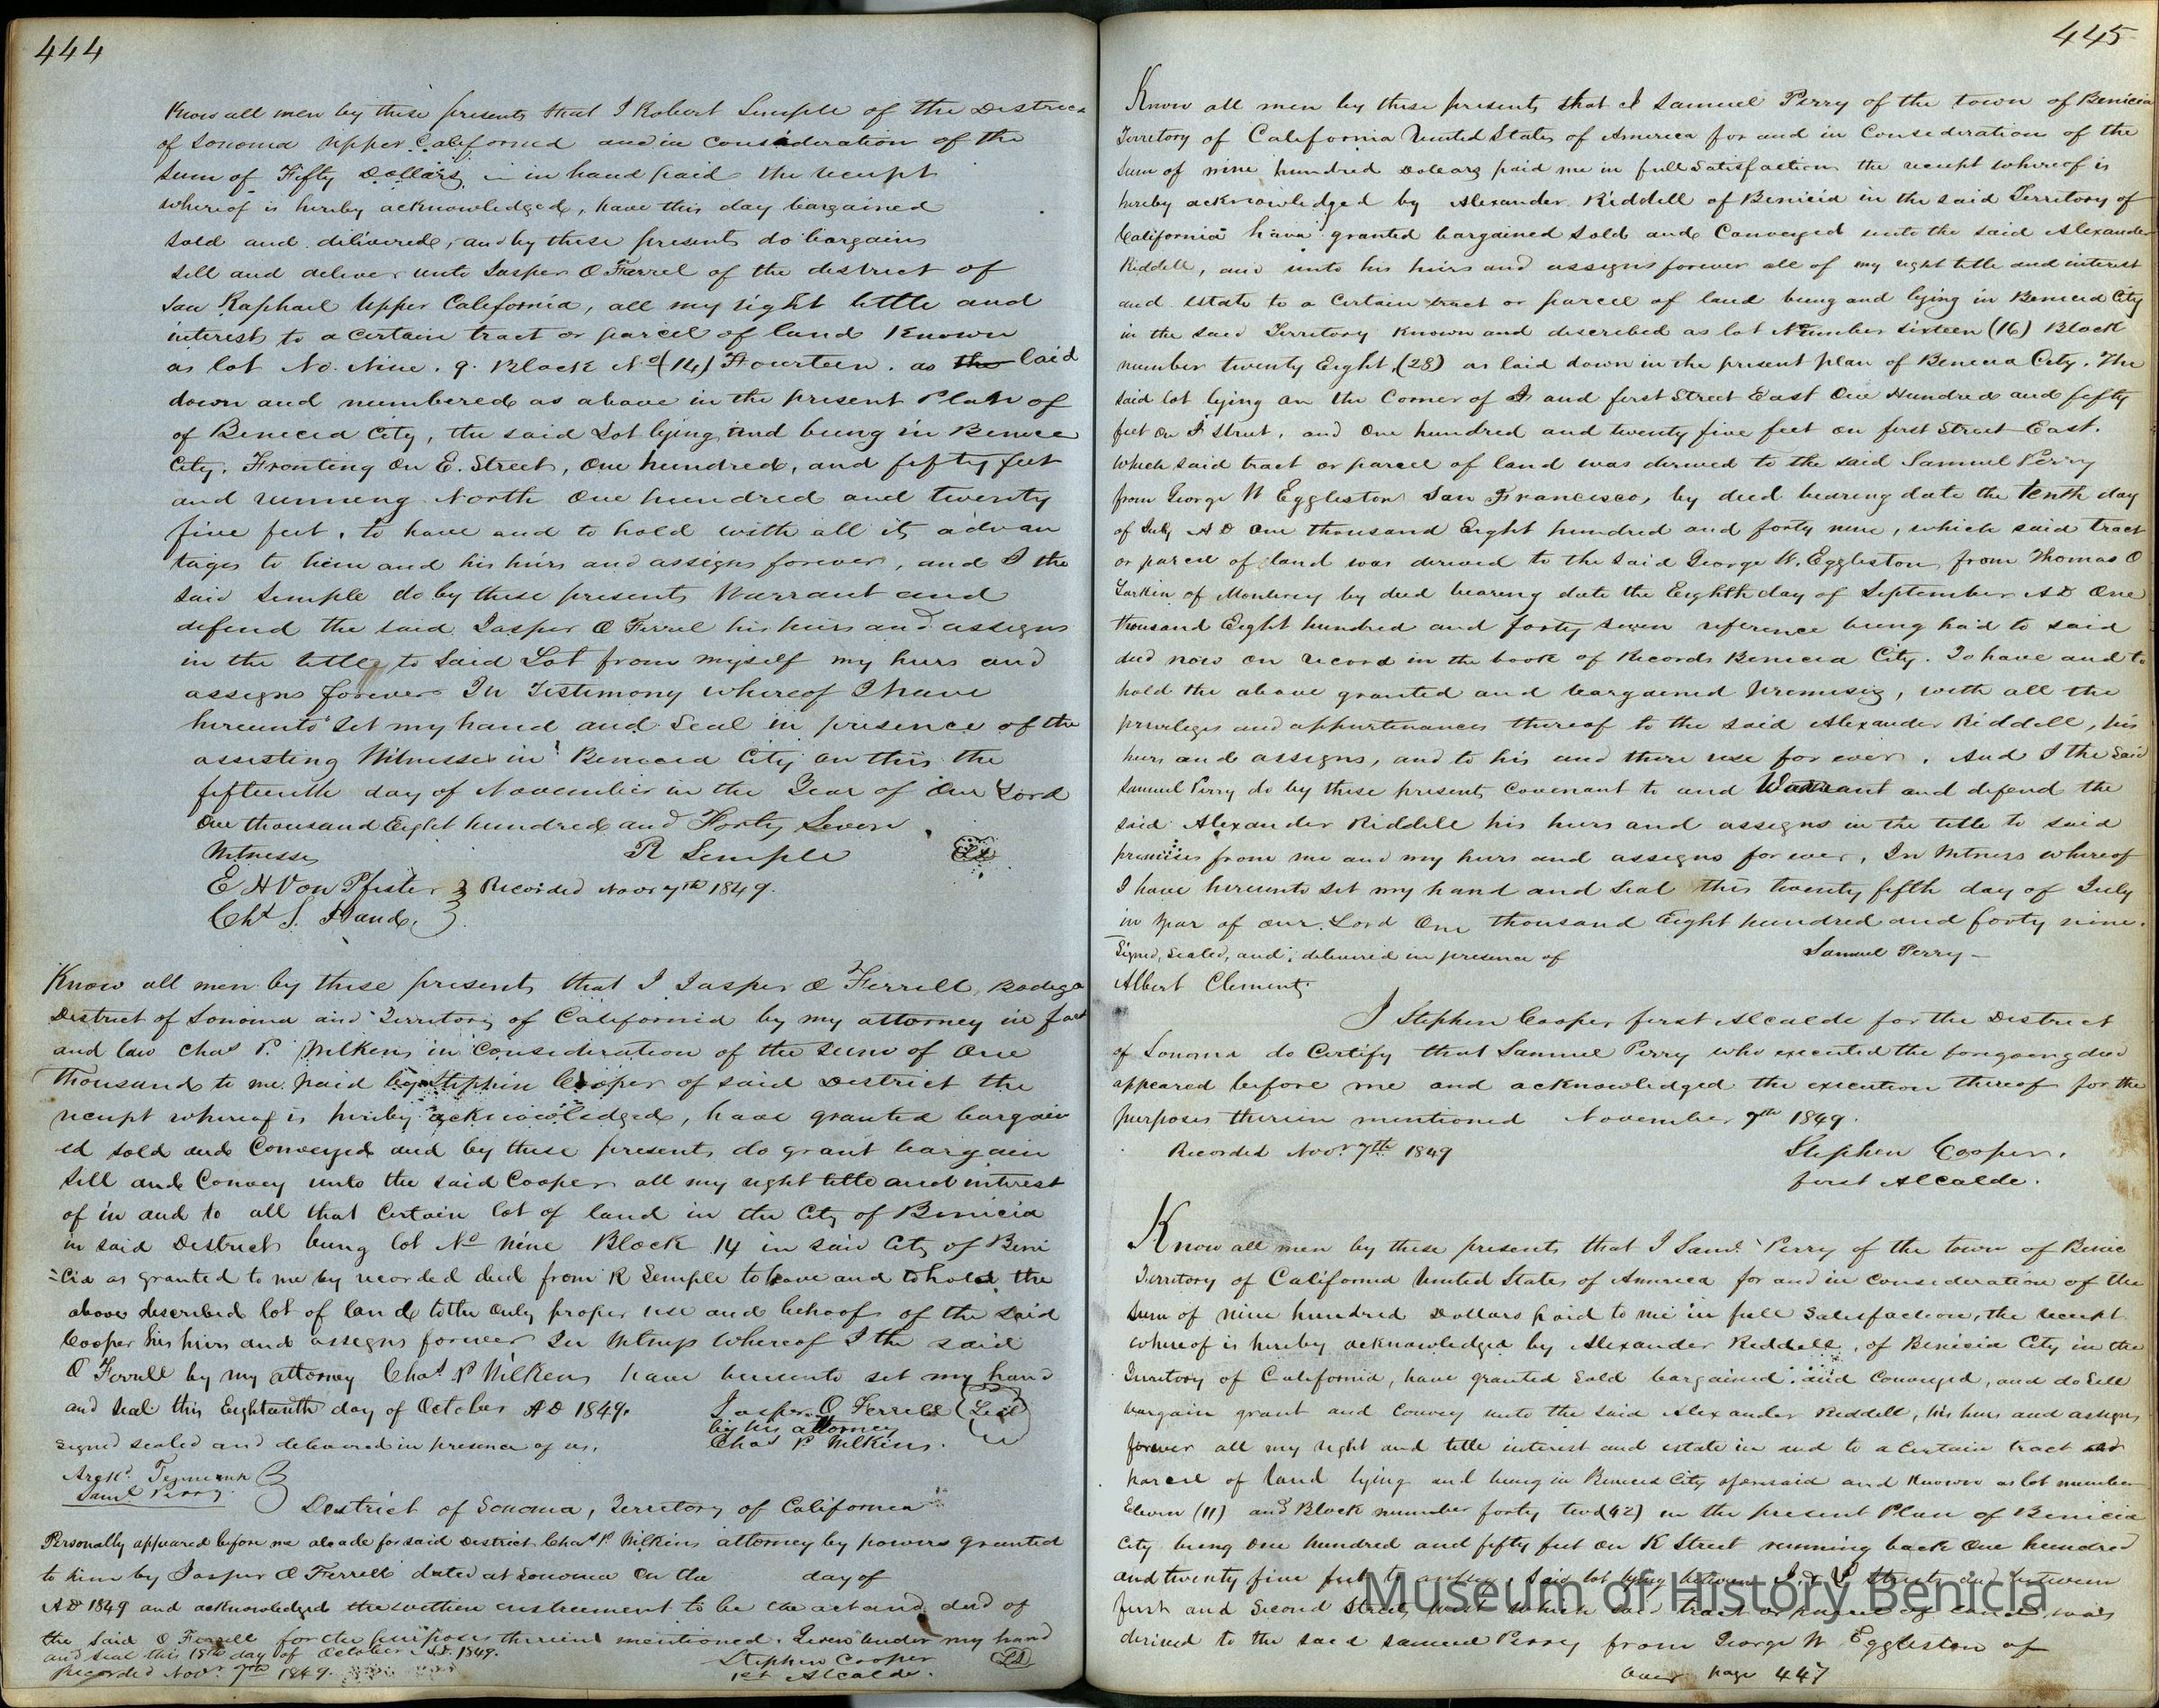 444
Know all men by these presents that I Robert Semple of the District
of Sonoma Upper California and in consideration of the
Sum of Fifty Dollars in hand paid the receipt
whereof is hereby acknowledged, have this day bargained
Sold and delivered, and by these presents do bargain
sell and deliver unto Jasper O Farrel of the district of
San Raphael Upper California, all my right tittle and
interest to a certain tract or parcel of land Known
as lot No. Nine. 9. Block No (14) Fourteen. as the laid
down and numbered as above in the present Plan of
of Benicia City, the said Lot lying and being in Benicia
City, Fronting on E. Street, One hundred, and fifty feet
and running North One hundred and twenty
five feet, to have and to hold with all its advan
tages to him and his heirs and assigns forever, and I the
Said Semple do by these presents Warrant and
defend the said Jasper O Ferrel his heirs and assigns
in the title to Said Lot from myself my heirs and
assigns forever In Testimony whereof I have
hereunto set my hand and Seal in presence of the
assisting Witnesses in Benicia City on this the
fifteenth day of November in the Year of Our Lord
One thousand Eight hundred and Forty Seven.
Witnesses R Semple LS
E H Von Pfister Recorded Novr 7th 1849.
Chs S. Hand,
Know all men by these presents that I Jasper O Ferrell, Bodega
District of Sonoma and Territory of California by my attorney in fact
and law Chas P. Wilkins in Consideration of the sum of One
Thousand to me paid by Stephen Cooper of said District the
receipt whereof is hereby acknowledged, have granted bargain
ed sold and Conveyed and by these presents do grant bargain
Sell and Convey unto the said Cooper all my right title and interest
of in and to all that Certain lot of land in the City of Benicia
in said District being lot No Nine Block 14 in said City of Beni
=cia as granted to me by recorded deed from R Semple to have and to hold the
above described lot of land to the only proper use and behoof of the said
Cooper his heirs and assigns forever In Witness Whereof I the said
O Ferrell by my attorney Chas P Wilkins have hereunto set my hand
and seal this Eighteenth day of October AD 1849. Jasper O Ferrell (Seal)
by his attorney
signed sealed and delivered in presence of us. Chas P Wilkins.
Saml Perry
District of Sonoma, Territory of California
Personally appeared before me alcade for said District Chas P Wilkins attorney by powers granted
to him by Jasper O Ferrell dated at Sonoma On the day of
AD 1849 and acknowledged the within instrument to be the act and deed of
the said O Ferrell for the purposes therein mentioned. Given under my hand
and seal this 18th day of October AD. 1849. Stephen Cooper LS
Recorded Novr 7th 1849. 1st Alcalde.
445
Know all men by these presents that I Samuel Perry of the town of Benicia
Territory of California United States of America for and in Consideration of the
Sum of nine hundred Dollars paid me in full Satisfaction the receipt whereof is
hereby acknowledged by Alexander Riddell of Benicia in the said Territory of
California have granted bargained Sold and Conveyed unto the said Alexander
Riddell, and unto his heirs and assigns forever all of my right title and interest
and estate to a Certain tract or parcel of land being and lying in Benicia City
in the said Territory Known and described as lot Number sixteen (16) Block
number twenty Eight (28) as laid down in the present plan of Benicia City. The
said lot lying on the Corner of I and first Street East One Hundred and fifty
feet on I Street, and One hundred and twenty five feet on first Street East.
Which said tract or parcel of land was derived to the said Samuel Perry
from George W Eggleston San Francisco, by deed bearing date the tenth day
of July AD One thousand Eight hundred and forty nine, which said tract
or parcel of land was derived to the said George W. Eggleston from Thomas O
Larkin of Monterey by deed bearing date the Eighth day of September AD One
thousand Eight hundred and forty seven reference being had to said
deed now on record in the book of Records Benicia City. To have and to
hold the above granted and bargained premises, with all the
privileges and appurtenances thereof to the said Alexander Riddell, his
heirs and assigns, and to his and there use forever. And I the Said
Samuel Perry do by these presents Covenant to and Warrant and defend the
said Alexander Riddell his heirs and assigns in the title to said
premises from me and my heirs and assigns forever, In Witness whereof
I have hereunto set my hand and seal this twenty fifth day of July
in year of our Lord One thousand Eight hundred and forty nine.
Signed, sealed, and delivered in presence of Samuel Perry
Albert Clements
I Stephen Cooper first Alcalde for the District
of Sonoma do Certify that Samuel Perry who executed the foregoing deed
appeared before me and acknowledged the execution thereof for the
purposes therein mentioned November 7th 1849.
Recorded Novr 7th 1849 Stephen Cooper,
first Alcalde.
Know all men by these presents that I Saml Perry of the town of Benic
Territory of California United States of America for and in consideration of the
Sum of nine hundred Dollars paid to me in full Satisfaction, the receipt
whereof is hereby acknowledged by Alexander Riddell, of Benicia City in the
Territory of California, have granted Sold bargained and Conveyed, and do Sell
bargain grant and Convey unto the said Alexander Riddell, his heirs and assigns
forever all my right and title interest and estate in and to a certain tract and
parcel of land lying and being in Benicia City aforesaid and Known as lot number
Eleven (11) and Block number forty two (42) in the present Plan of Benicia
City being One hundred and fifty feet on K Street running back One hundred
and twenty five feet Said lot lying between Street and between
first and Second Streets West Which said tract or parcel of land was
derived to the said Samuel Perry from George W Eggleston of
Over page 447
Museum of History Benicia